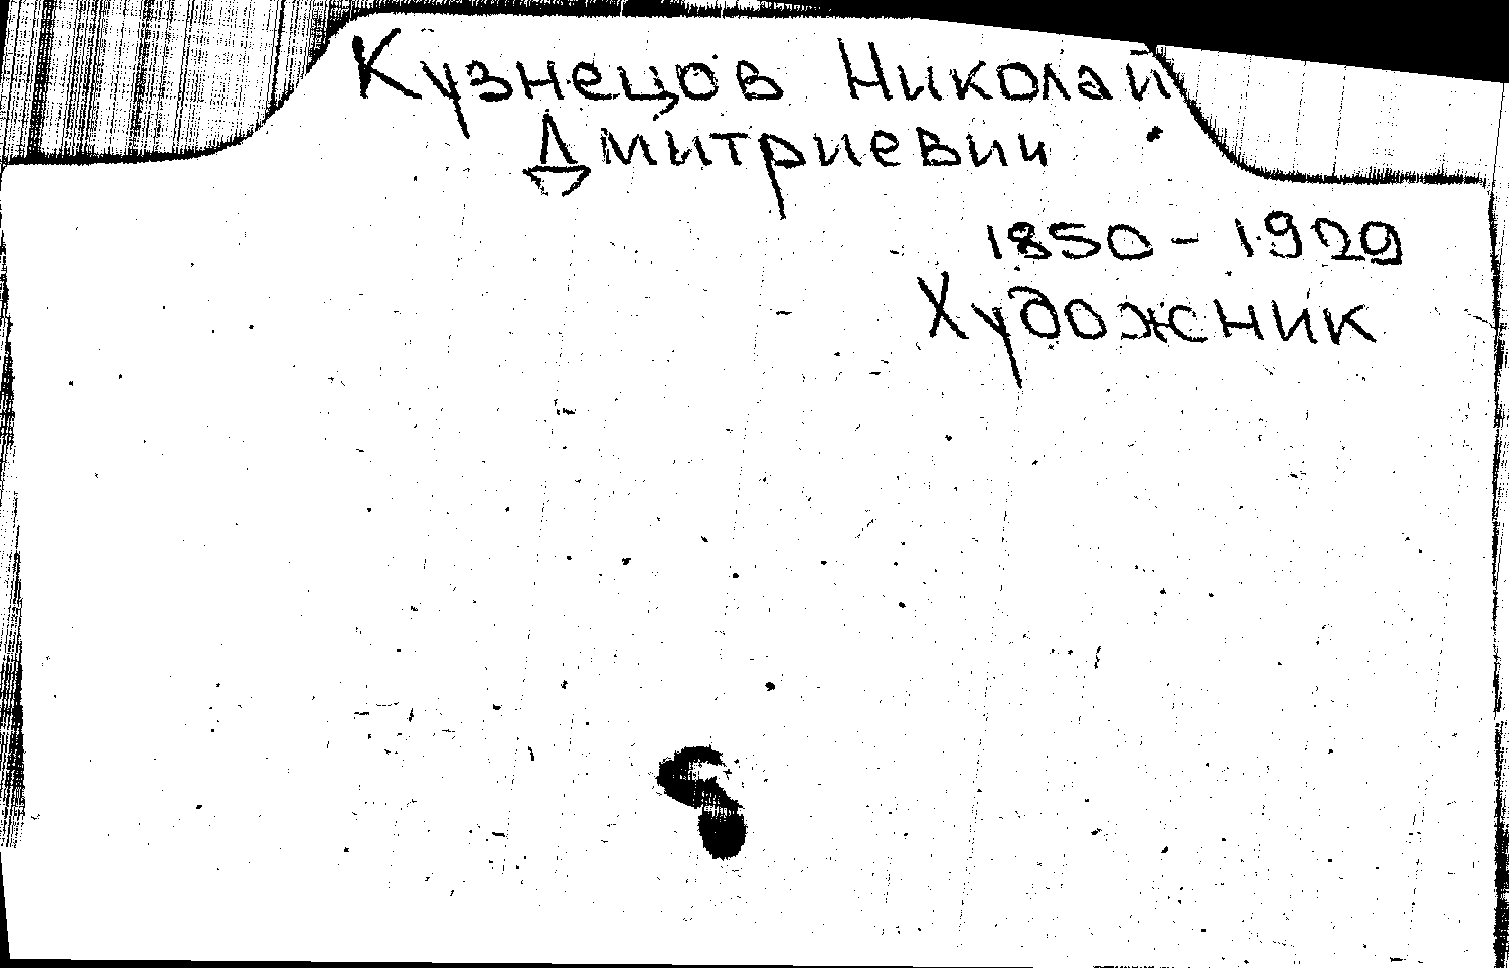 Кузнецов Николай
Дмитриевич
1850-1929
Художник